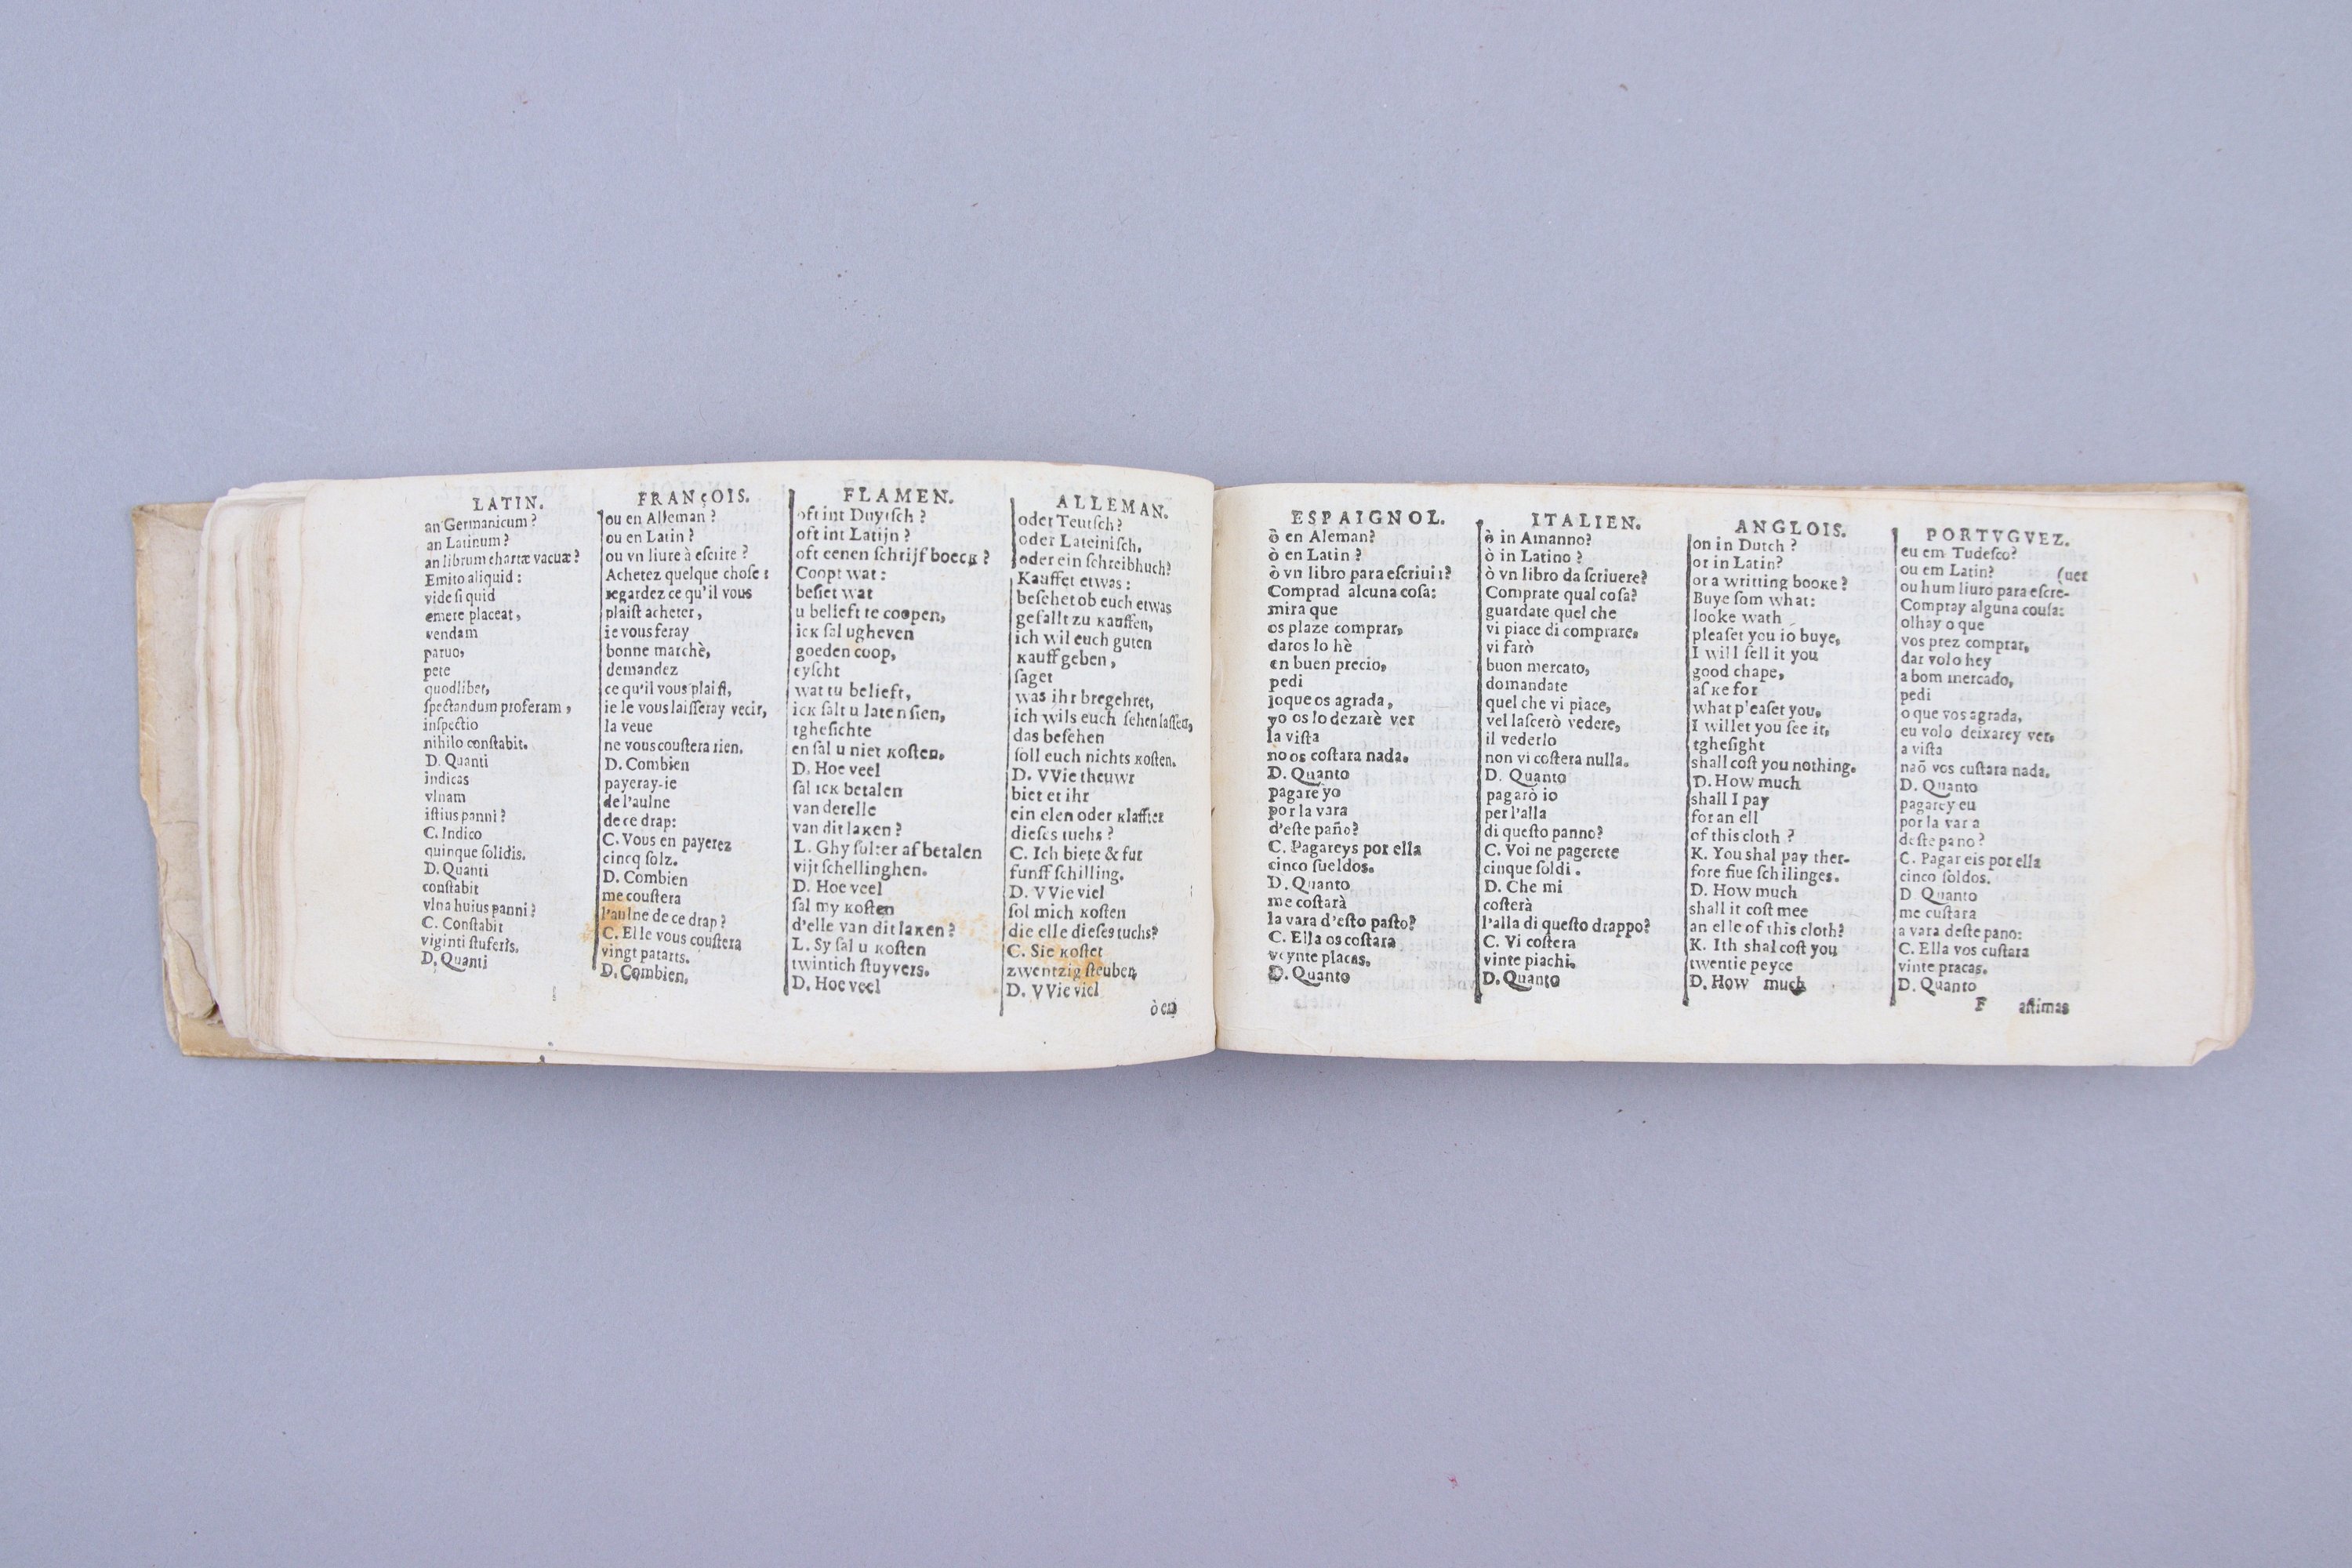 LATIN.
an Germanicum?
an Latinum?
an librum chartæ vacuæ?
Emito aliquid:
vide ſi quid
emere placeat,
vendam
paruo,
pete
quodlibet,
ſpectandum proferam,
inſpectio
nihilo conſtabit.
D. Quanti
indicas
vlnam
iſtius panni?
C. Indico
quinque ſolidis.
D. Quanti
conſtabit
vlna huius panni?
C. Conſtabit
viginti ſtuferis.
D. Quanti
FRANçOIS.
ou en Alleman?
ou en Latin?
ou vn liure à eſcrire?
Achetez quelque choſe:
regardez ce qu'il vous
plaiſt acheter,
ie vous feray
bonne marchè,
demandez
ce qu'il vous plaiſt,
ie le vous laiſſeray vecir,
la veue
ne vous couſtera rien.
D. Combien
payeray-ie
de l'aulne
de ce drap:
C. Vous en payerez
cincq ſolz.
D. Combien
me couſtera
l'aulne de ce drap?
C. Elle vous couſtera
vingt patarts.
D. Combien,
FLAMEN.
oft int Duytſch?
oft int Latijn?
oft eenen ſchrijf boecк?
Coopt wat:
beſiet wat
u belieft te coopen,
icк ſal ugheven
goeden coop,
eyſcht
wat tu belieft,
icк ſalt u laten ſien,
tgheſichte
en ſal u niet кoſten.
D. Hoe veel
ſal icк betalen
van derelle
van dit laкen?
L. Ghy ſulter af betalen
vijt ſchellinghen.
D. Hoe veel
ſal my кoſten
d'elle van dit laкen?
L. Sy ſal u кoſten
twintich ſtuyvers.
D. Hoe veel
ALLEMAN.
oder Teutſch?
oder Lateiniſch.
oder ein ſchreibhuch?
Kauffet etwas:
beſehet ob euch etwas
gefallt zu кauffen,
ich wil euch guten
кauff geben,
ſaget
was ihr bregehret,
ich wils euch ſehen laſſen,
das beſehen
ſoll euch nichts кoſten.
D. VVie theuwr
biet et ihr
ein elen oder кlaffter
dieſes tuchs?
C. Ich biete & fur
funff ſchilling.
D. VVie viel
ſol mich кoſten
die elle dieſes tuchs?
C. Sie кoſtet
zwentzig ſteuber,
D. VVie viel
ò en
ESPAIGNOL.
ò en Aleman?
ò en Latin?
ò vn libro para eſcriuir?
Comprad alcuna coſa:
mira que
os plaze comprar,
daros lo hè
en buen precio,
pedi
joque os agrada,
yo os lo dezarè ver
la viſta
no os coſtara nada.
D. Quanto
pagare yo
por la vara
d'eſte paño?
C. Pagareys por ella
cinco ſueldos.
D. Quanto
me coſtarà
la vara d'eſto paſto?
C. Ella os coſtara
veynte placas.
D. Quanto
ITALIEN.
ò in Amanno?
ò in Latino?
ò vn libro da ſcriuere?
Comprate qual coſa?
guardate quel che
vi piace di comprare.
vi farò
buon mercato,
domandate
quel che vi piace,
vel laſcerò vedere,
il vederlo
non vi coſtera nulla.
D. Quanto
pagarò io
per l'alla
di queſto panno?
C. Voi ne pagerete
cinque ſoldi.
D. Che mi
coſterà
l'alla di queſto drappo?
C. Vi coſtera
vinte piachi.
D. Quanto
ANGLOIS.
on in Dutch?
or in Latin?
or a writting booкe?
Buye ſom what:
looke wath
pleaſet you io buye,
I will ſell it you
good chape,
aſ кe for
what p'eaſet you,
I willet you ſee it,
tgheſight
shall coſt you nothing.
D. How much
shall I pay
for an ell
of this cloth?
K. You shal pay ther-
fore fiue ſchilinges.
D. How much
shall it coſt mee
an elle of this cloth?
K. Ith shal coſt you
twentie peyce
D. How much
PORTVGVEZ.
eu em Tudeſco?
ou em Latin? (uer
ou hum liuro para eſcrè-
Compray alguna couſa:
olhay o que
vos prez comprar,
dar volo hey
a bom mercado,
pedi
o que vos agrada,
eu volo deixarey ver,
a viſta
naõ vos cuſtara nada.
D. Quanto
pagarey eu
por la vara
deſte pano?
C. Pagareis por ella
cinco ſoldos.
D Quanto
me cuſtara
a vara deſte pano:
C. Ella vos cuſtara
vinte pracas.
D. Quanto
F aſtimas